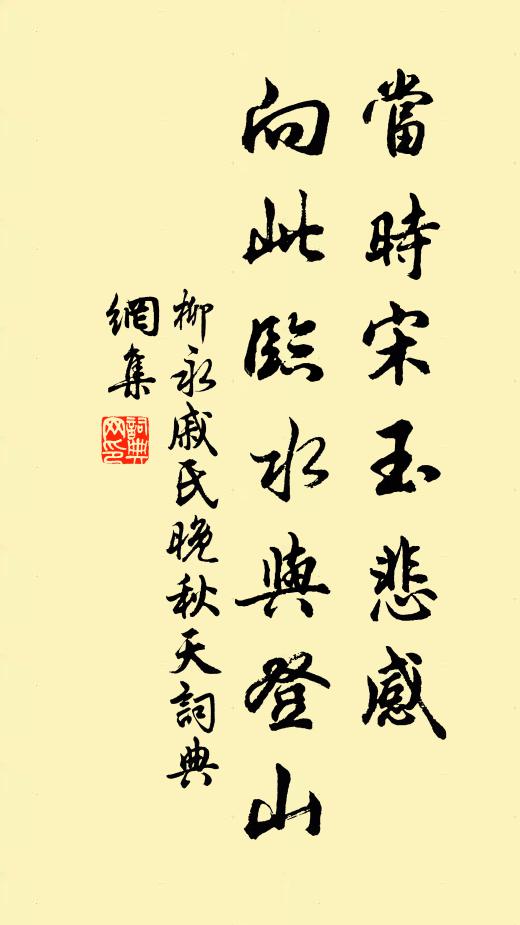 當時宋玉悲感
向此臨水與登山
柳永戚氏晚秋天詞典
網集
詞典
网印